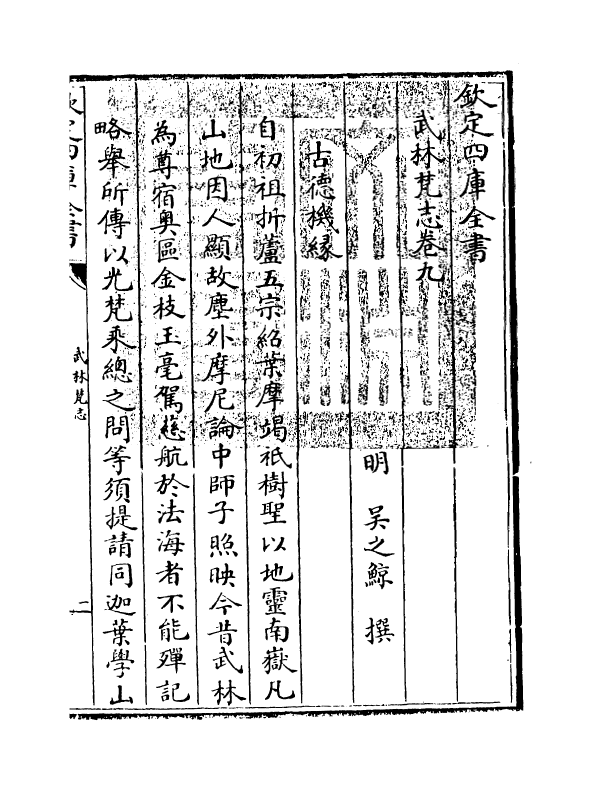 欽定四庫全書
武林梵志卷九
明 吳之鯨 撰
古德機縁
自初祖折蘆五宗紹葉摩竭祇樹聖以地靈南嶽凡
山地因人顯故塵外摩尼論中師子照映今昔武林
為尊宿奥區金枝玉毫駕慈航於法海者不能殫記
略舉所傳以光梵乘總之問等須提請同迦葉學山
欽定四庫全書
武林梵志
二